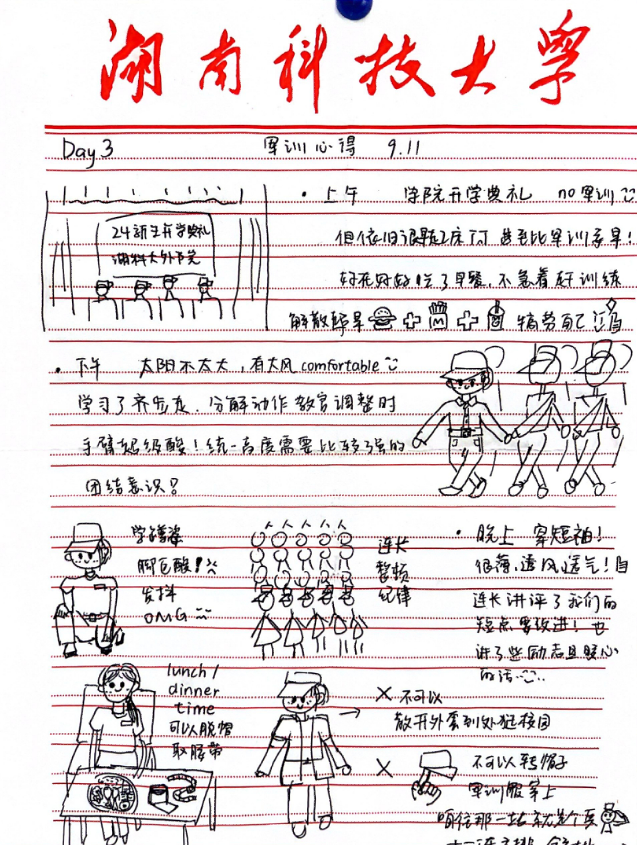 湖南科技大学
Day 3 军训心得 9.11
24新生开学典礼
湖科大外国语学院
· 上午 学院开学典礼 no军训
但依旧很早起床 甚至比军训還早!
好在好好吃了早餐、不急着赶训练
解散 + + 犒劳自己
· 下午 太阳不太大,有大风comfortable
学习了齐步走、分解动作教官调整时
手臂超级酸!统一高度需要比较强的
团结意识?
学蹲姿
脚也酸!
发抖
OMG
连长
整顿
纪律
· 晚上 穿短袖!
很薄,透风透气!
连长讲评了我们的
短点要改进!也
讲了些励志且暖心
的话...
lunch/
dinner
time
可以脱帽
取腰带
× 不可以
敞开外套到处逛校园
× 不可以转帽子
军训服穿上
咱往那一站就是个兵